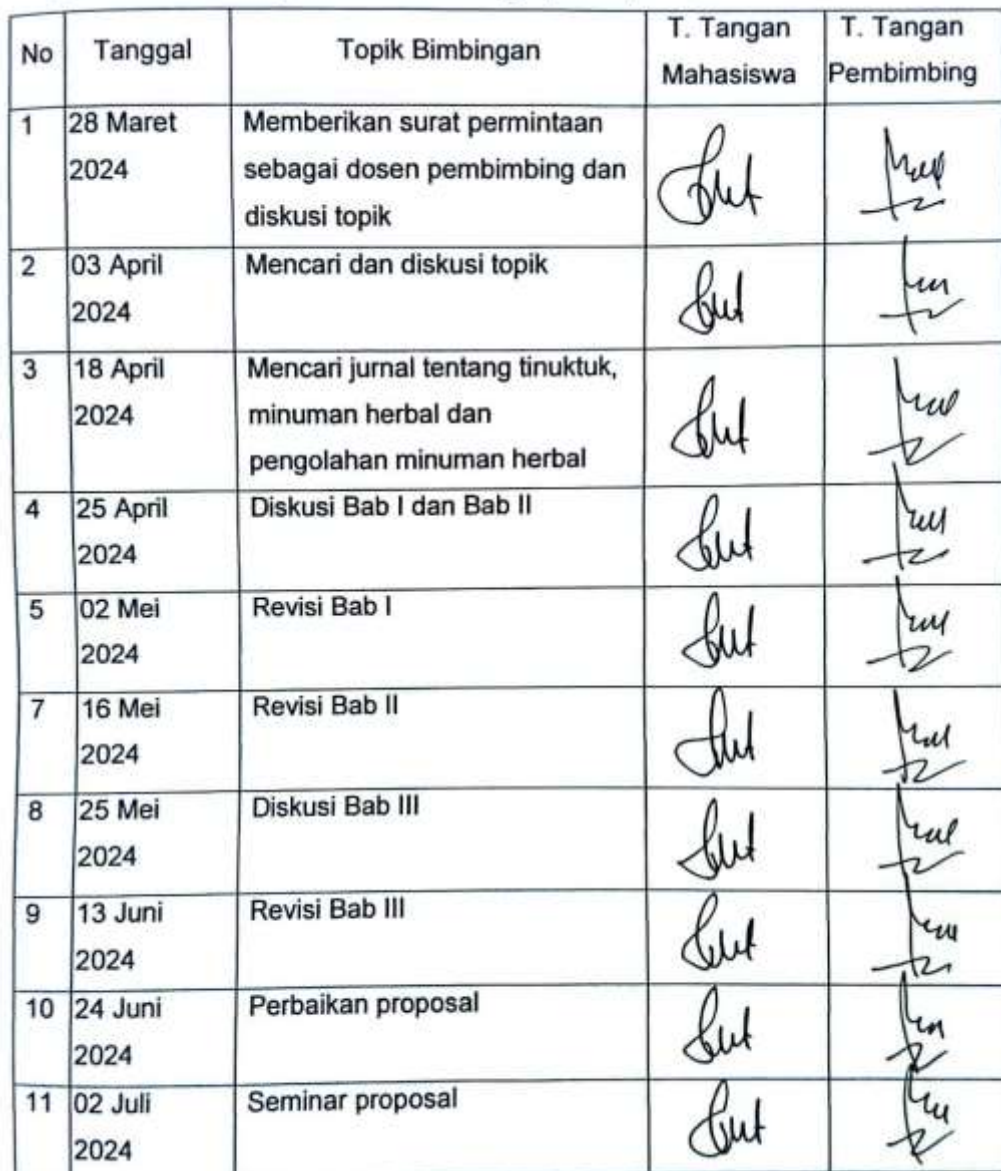 No Tanggal Topik Bimbingan T. Tangan Mahasiswa T. Tangan Pembimbing
1 28 Maret 2024 Memberikan surat permintaan
sebagai dosen pembimbing dan
diskusi topik
2 03 April 2024 Mencari dan diskusi topik
3 18 April 2024 Mencari jurnal tentang tinuktuk,
minuman herbal dan
pengolahan minuman herbal
4 25 April 2024 Diskusi Bab I dan Bab II
5 02 Mei 2024 Revisi Bab I
7 16 Mei 2024 Revisi Bab II
8 25 Mei 2024 Diskusi Bab III
9 13 Juni 2024 Revisi Bab III
10 24 Juni 2024 Perbaikan proposal
11 02 Juli 2024 Seminar proposal